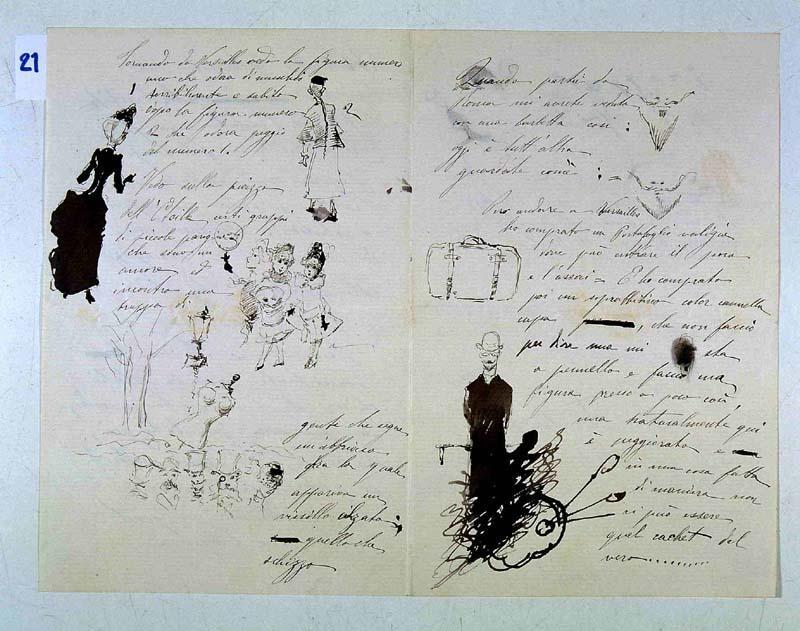 21
Tornando da Versailles vedo la figura numero
uno che odora di muschio
1
terribilmente e subito
dopo la figura numero
2 che odora peggio
2
del numero 1.
Vedo sulla piazza
dell'Etoile certi gruppi
di piccole
che sono un
amore ed
incontro una
truppa di
gente che
fra la quale
appariva un
alzato:
quello che
schizzo
Quando partii da
Roma mi avrete veduto
con una barbetta così:
oggi è tutt'altra
guardate com'è: =
Per andare a Versailles
ho comprato un Portafoglio valigia
dove può entrare il pora
e l'asseri = E ho comprato
per me soprabitino color cannella
capa, che non faccio
per dire ma mi sta
a pennello e faccio una
figura presso a poco così,
ma naturalmente qui
è peggiorata e
in una cosa fatta
di maniera non
vi può essere
quel cachet del
vero..........